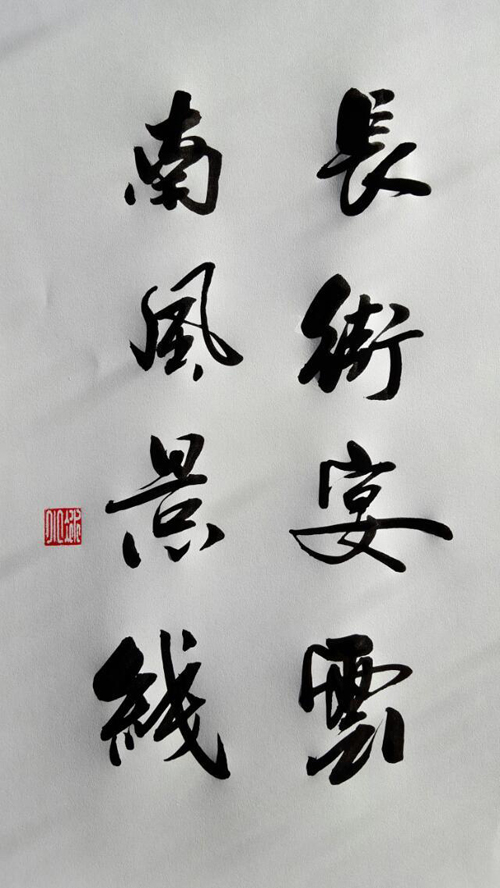 長街宴雲
南風景线